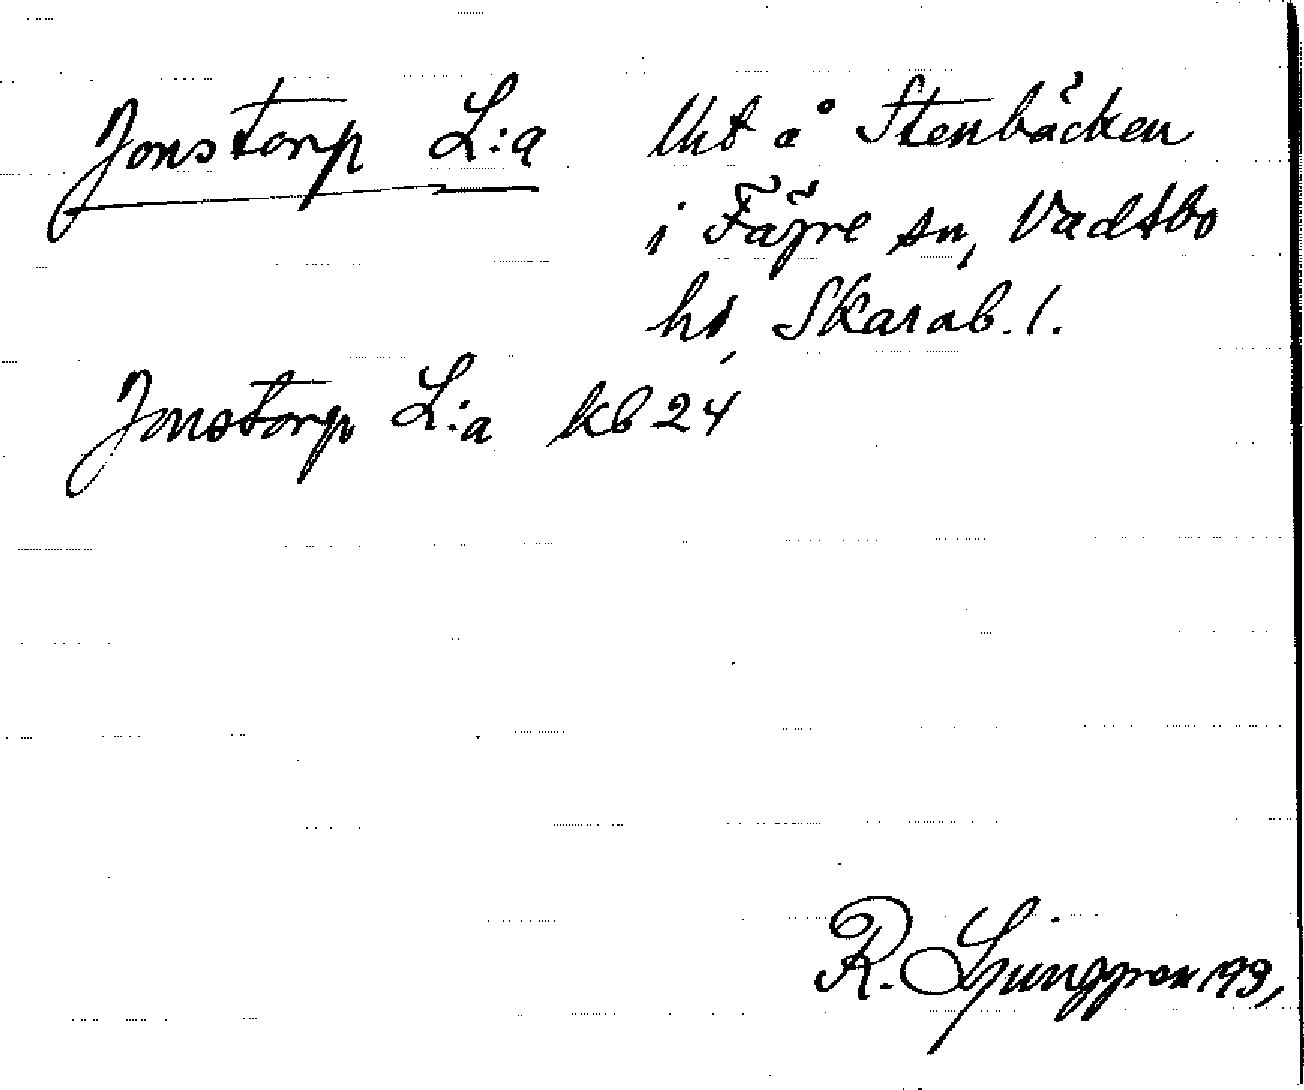 Jonstorp L:a Utb å Stenbäcken
i Fägre sn, Vadsbo
hd, Skarab. l.
Jonstorp L:a kb 24
R. Ljunggren 199,